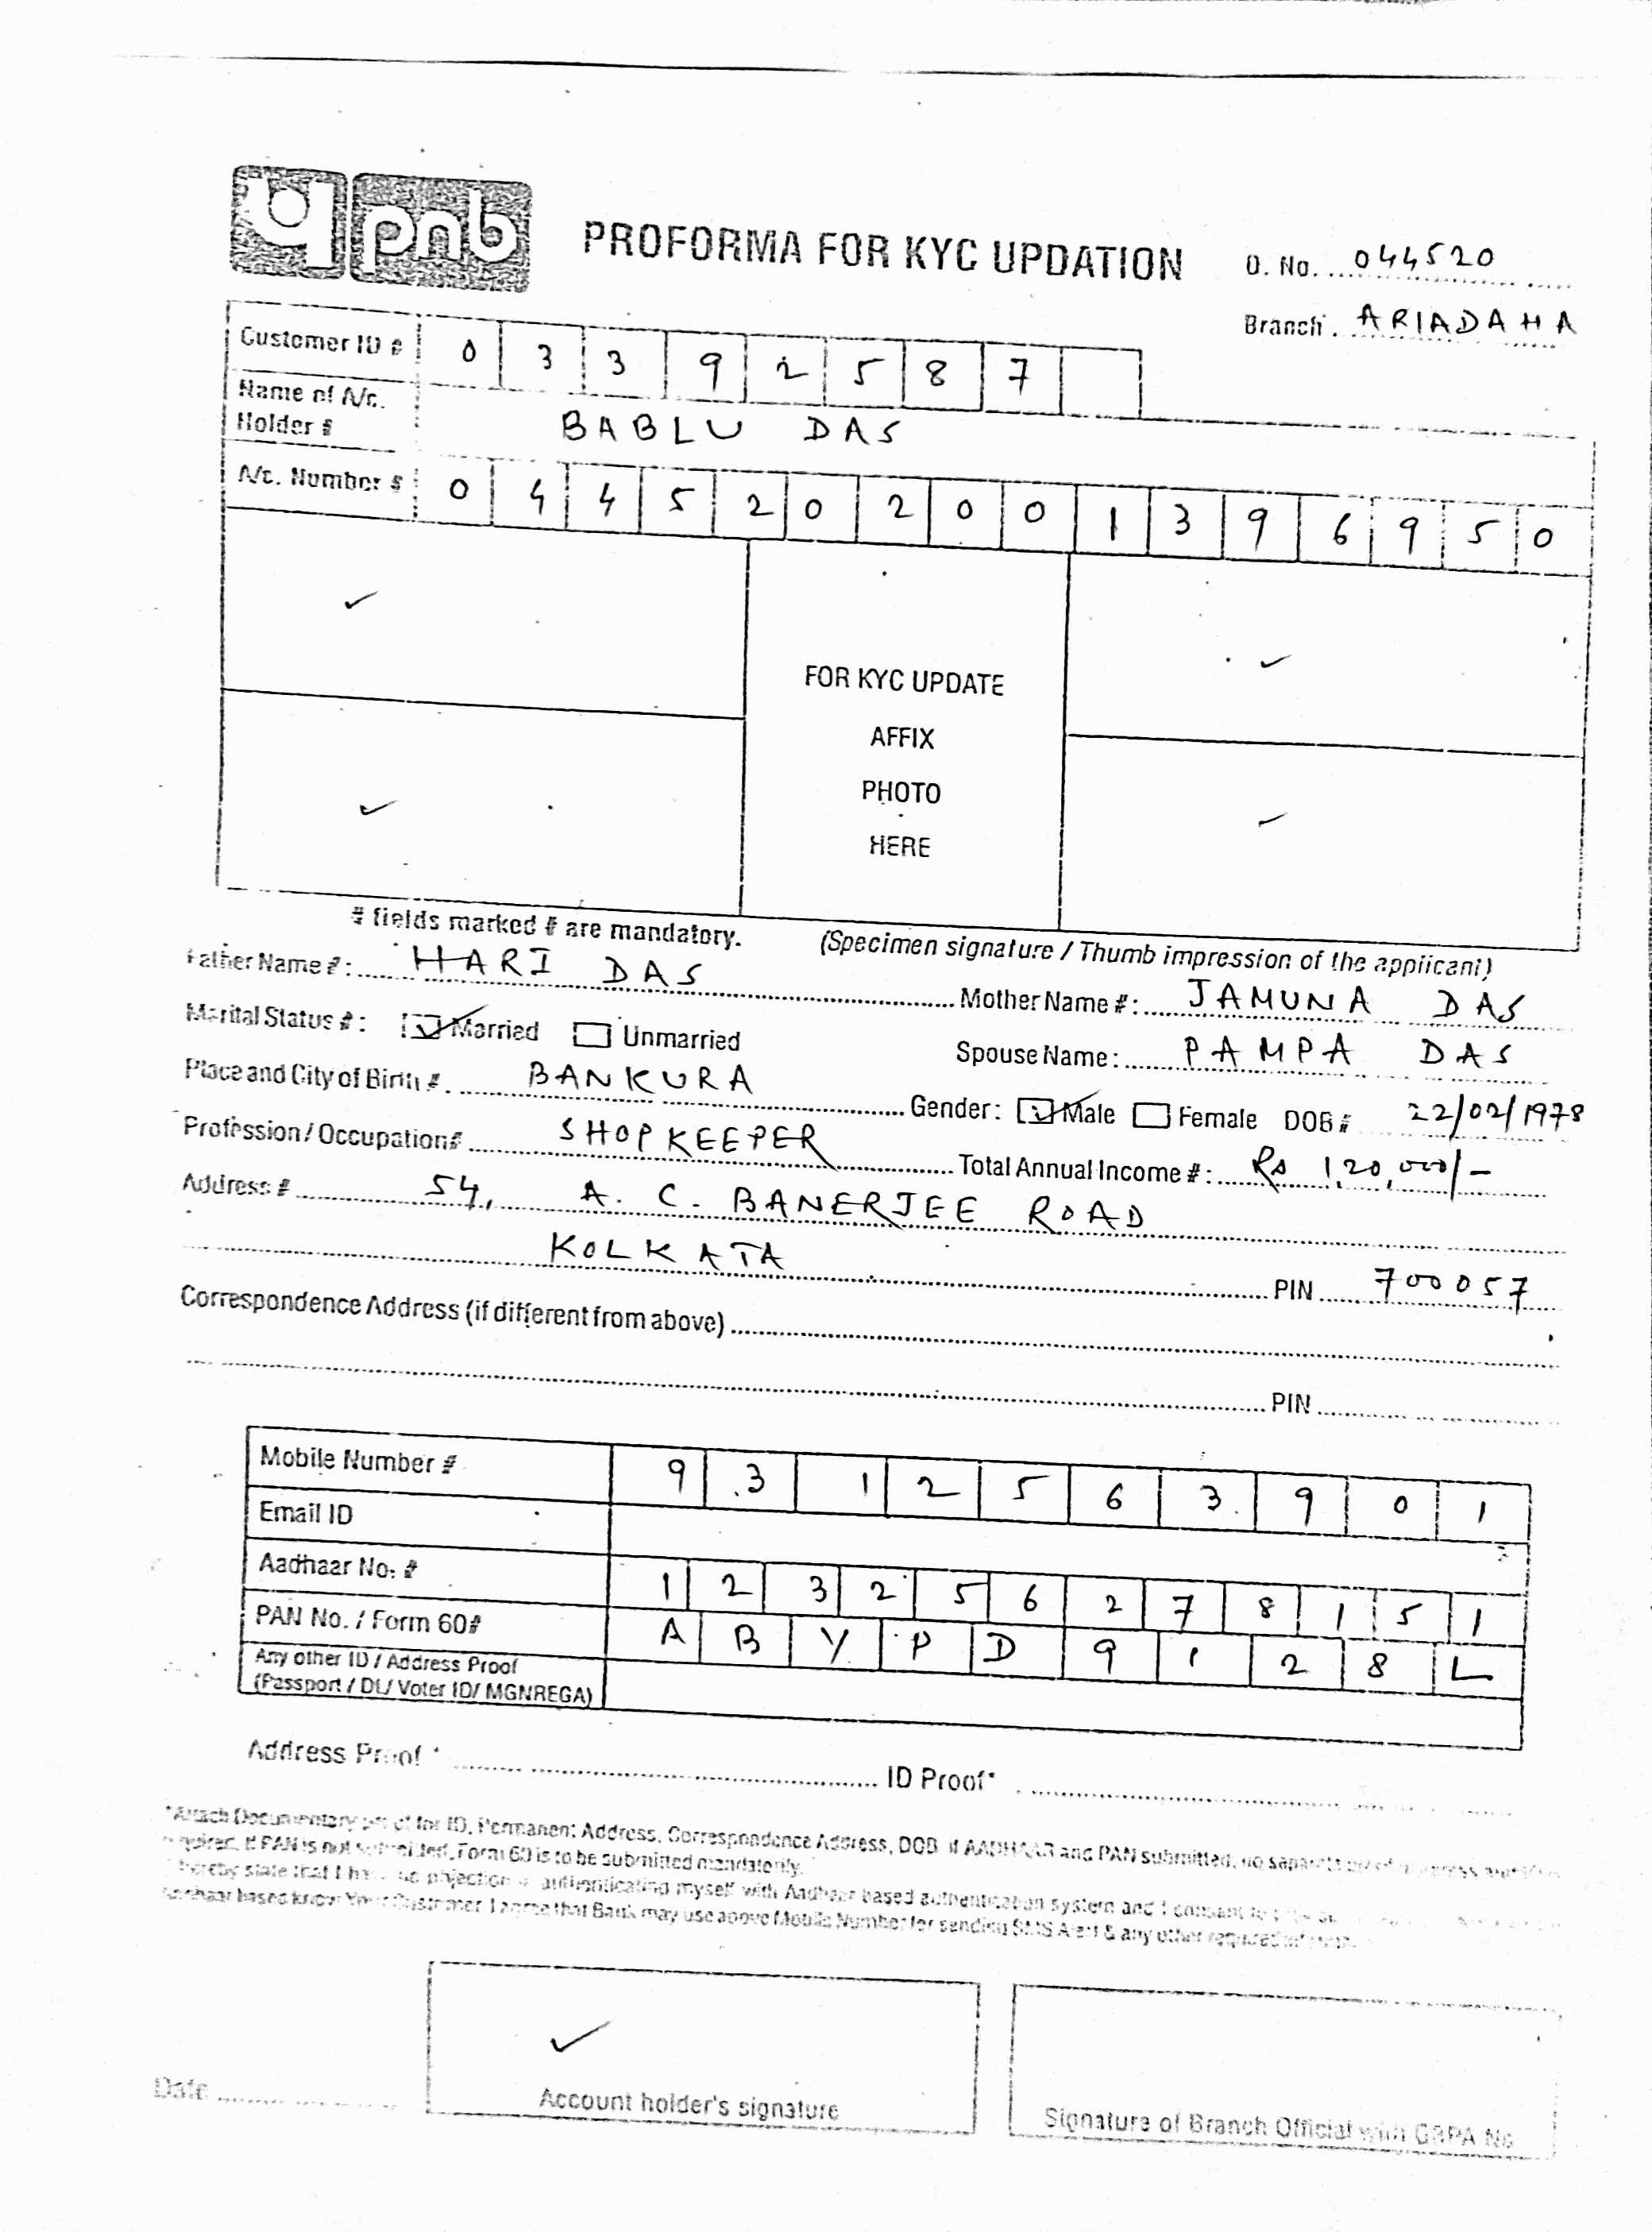 प pnb PROFORMA FOR KYC UPDATION D. No. 044520
Branch. ARIADAHA
Customer ID # 0 3 3 9 2 5 8 7
Name of A/c. Holder # BABLU DAS
A/c. Number # 0 4 4 5 2 0 2 0 0 1 3 9 6 9 5 0
FOR KYC UPDATE
AFFIX
PHOTO
HERE
# fields marked # are mandatory. (Specimen signature / Thumb impression of the applicant)
Father Name # : HARI DAS Mother Name # : JAMUNA DAS
Marital Status # : Married Unmarried Spouse Name : PAMPA DAS
Place and City of Birth # BANKURA Gender : Male Female DOB # 22/02/1978
Profession / Occupation # SHOPKEEPER Total Annual Income # : Rs 1,20,000/-
Address # 54, A. C. BANERJEE ROAD
KOLKATA PIN 700057
Correspondence Address (if different from above)
PIN
Mobile Number # 9 3 1 2 5 6 3 9 0 1
Email ID
Aadhaar No. # 1 2 3 2 5 6 2 7 8 1 5 1
PAN No. / Form 60# A B Y P D 9 1 2 8 L
Any other ID / Address Proof
(Passport / DL/ Voter ID/ MGNREGA)
Address Proof * ID Proof*
*Attach Documentary proof for ID, Permanent Address, Correspondence Address, DOB. If AADHAAR and PAN submitted, no separate
required. If PAN is not submitted, Form 60 is to be submitted mandatorily.
I hereby state that I have no objection in authenticating myself with Aadhaar based authentication system and I consent to
Aadhaar based Know Your Customer. I agree that Bank may use above Mobile Number for sending SMS Alert & any other required
Date Account holder's signature Signature of Branch Official with GBPA No